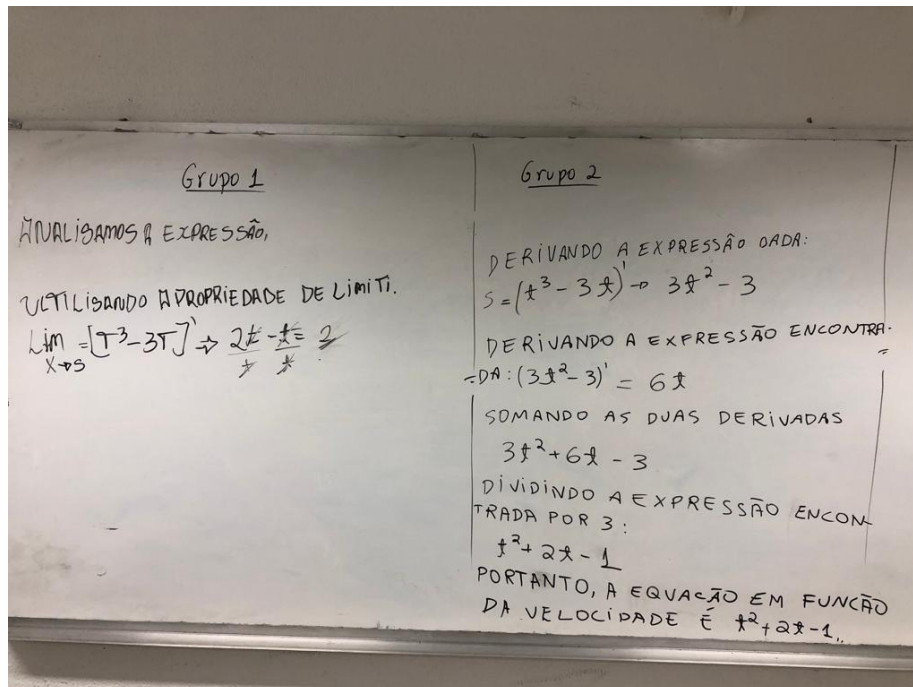 Grupo 1
ANALISAMOS A EXPRESSÃO,
ULTILISANDO A PROPRIEDADE DE LIMITI.
Lim = [T³-3T]' ⇒ 2t - t = 2
X→S t t
Grupo 2
DERIVANDO A EXPRESSÃO DADA:
S = (t³ - 3t)' → 3t² - 3
DERIVANDO A EXPRESSÃO ENCONTRA-
=DA: (3t² - 3)' = 6t
SOMANDO AS DUAS DERIVADAS
3t² + 6t - 3
DIVIDINDO A EXPRESSÃO ENCON-
TRADA POR 3:
t² + 2t - 1
PORTANTO, A EQUAÇÃO EM FUNCÃO
DA VELOCIDADE É t² + 2t - 1..